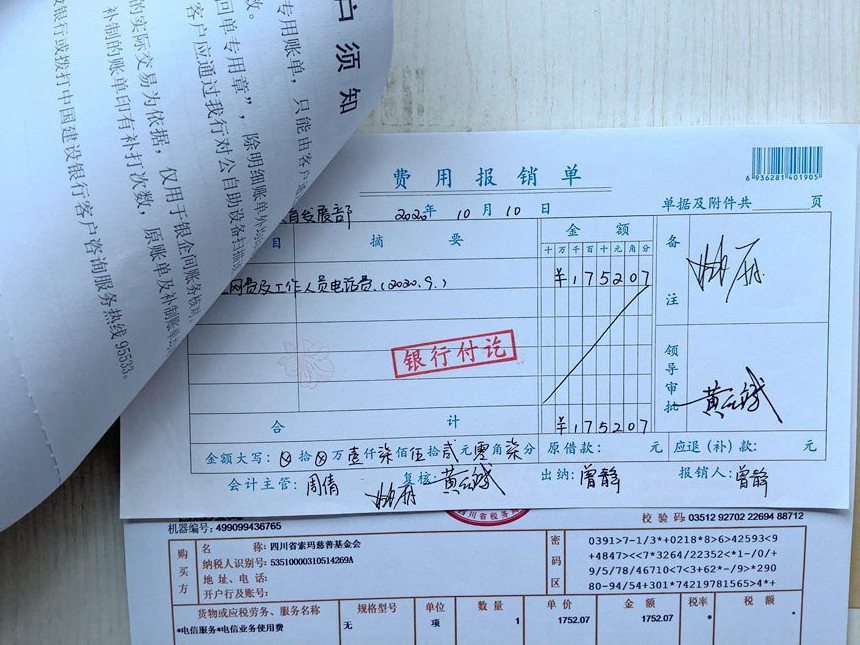 户须知
专用账单，只能由客户
效。
回单专用章”，除明细账单外均
客户应通过我行对公自助设备扫描
的实际交易为依据，仅用于银企间账务核对
补制的账单印有补打次数，原账单及补制账单
设银行或拨打中国建设银行客户咨询服务热线95533。
费用报销单
6 936281 401905
发展部 2020年 10月 10日 单据及附件共 页
目 摘要 金额 备注
十万千百十元角分
网费及工作人员电话费.(2020.9.) ¥175207
银行付讫
领导审批 黄
合计 ¥175207
金额大写: ⊗拾⊗万壹仟柒佰伍拾贰元零角柒分 原借款: 元 应退(补)款: 元
会计主管: 周倩 复核: 出纳: 曾静 报销人: 曾静
四川省税务
机器编号: 499099436765 校验码: 03512 92702 22694 88712
购买方
名称: 四川省索玛慈善基金会
纳税人识别号: 53510000310514269A
地址、电话:
开户行及账号:
密码区
0391>7-1/3*+0218*8>6>42593<9
+4847><<7*3264/22352<*1-/0/+
9/5/78/46710<7<3+62*-/9>*290
80-94/54+301*74219781565>4*+
货物或应税劳务、服务名称 规格型号 单位 数量 单价 金额 税率 税额
*电信服务*电信业务使用费 无 项 1 1752.07 1752.07 * *